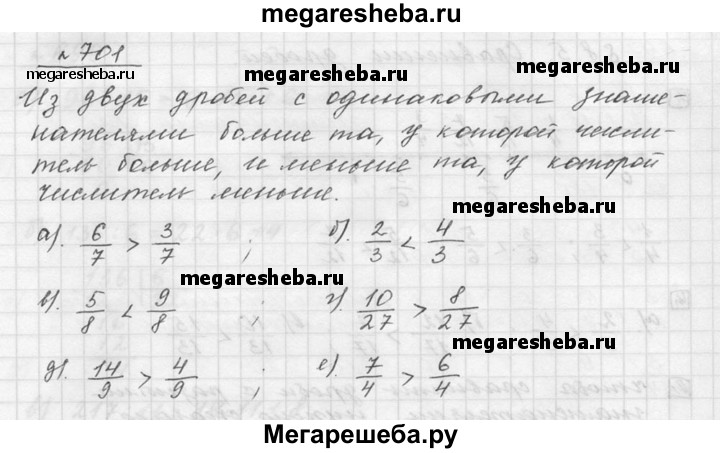 megaresheba.ru
№ 701
megaresheba.ru megaresheba.ru megaresheba.ru
Из двух дробей с одинаковыми знаме-
нателями больше та, у которой числи-
тель больше, и меньше та, у которой
числитель меньше.
а). 6/7 > 3/7 ; б). 2/3 < 4/3
megaresheba.ru megaresheba.ru
в). 5/8 < 9/8 ; г). 10/27 > 8/27
megaresheba.ru
д). 14/9 > 4/9 ; е). 7/4 > 6/4
Мегарешеба.ру